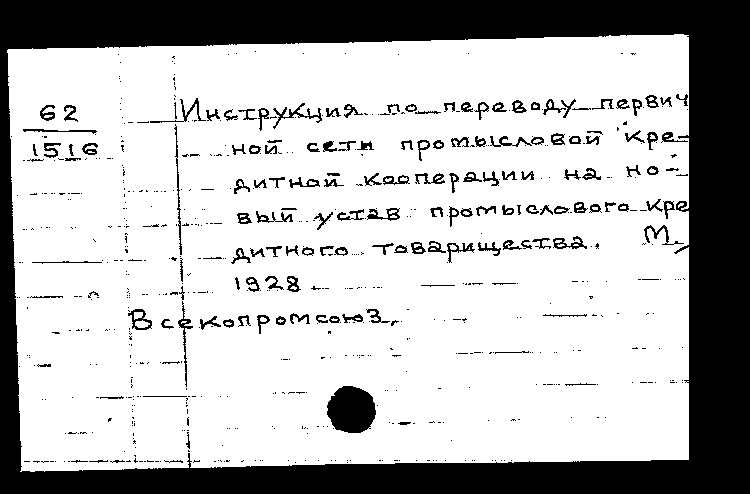 62
1516
Инструкция по переводу первич
ной сети промысловой кре-
дитной кооперации на но-
вый устав промыслового кре
дитного товарищества. М.,
1928
Всекопромсоюз.